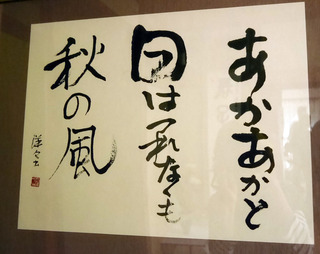 あかあかと
日はつれなくも
秋の風